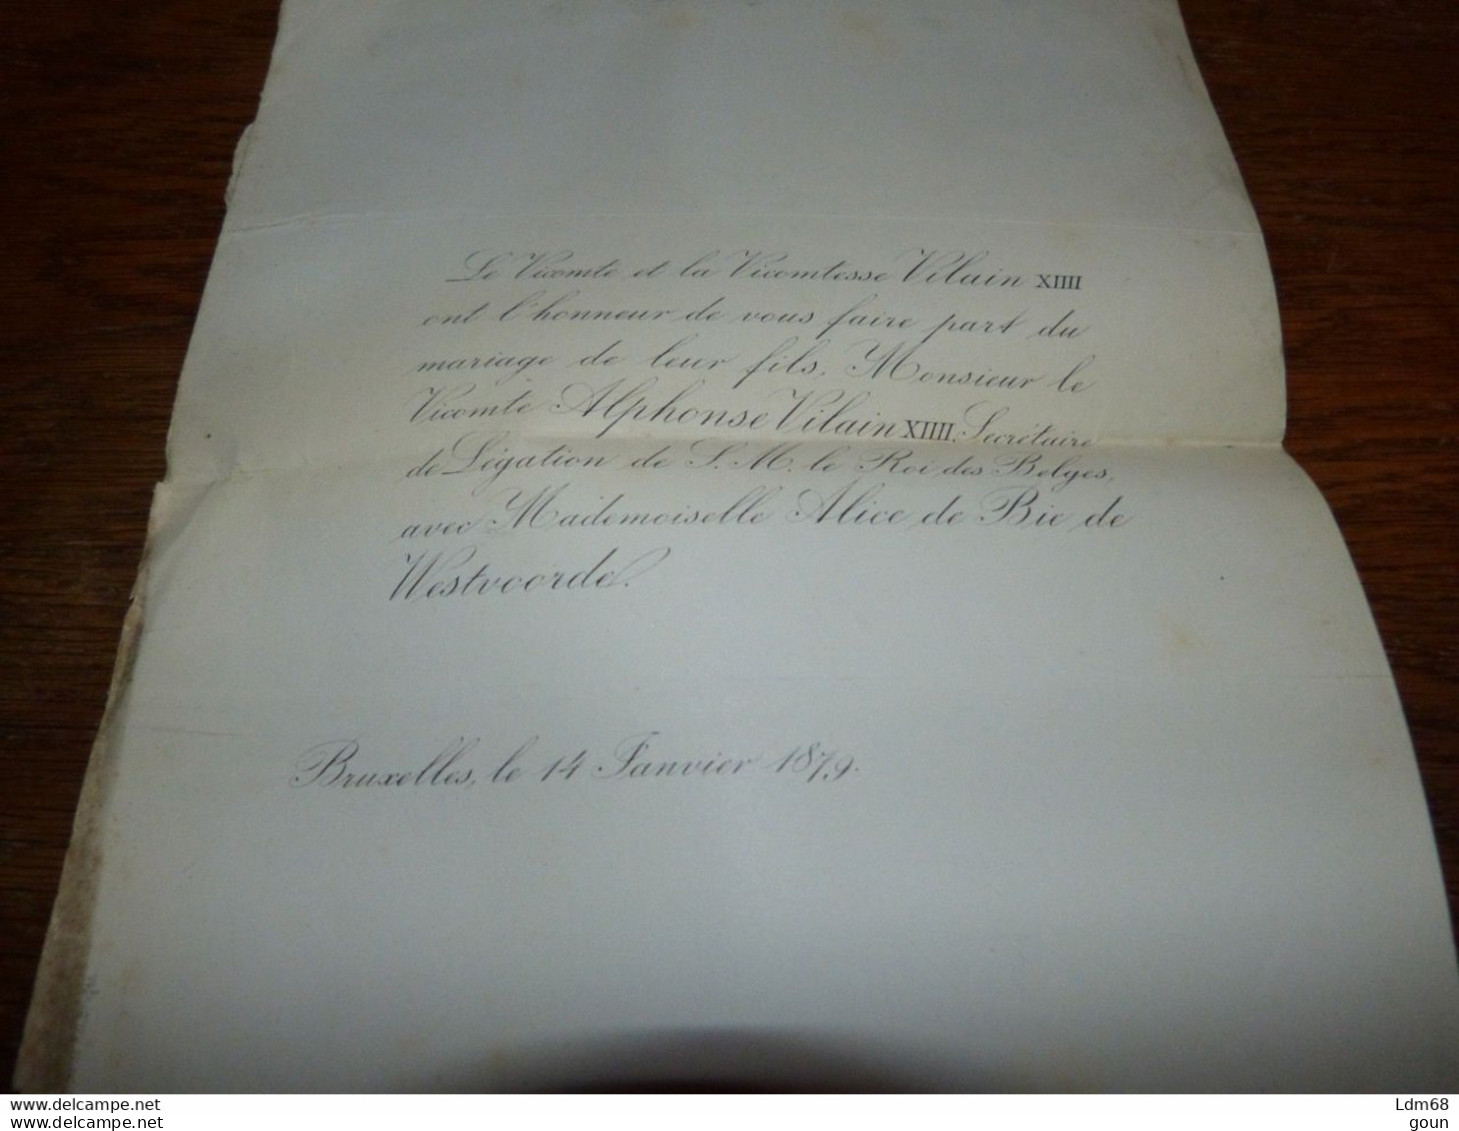 Le Vicomte et la Vicomtesse Vilain XIIII
ont l'honneur de vous faire part du
mariage de leur fils, Monsieur le
Vicomte Alphonse Vilain XIIII, Secrétaire
de Légation de S. M. le Roi des Belges,
avec Mademoiselle Alice de Bie de
Westvoorde.
Bruxelles, le 14 Janvier 1879.
www.delcampe.net
www.delcampe.net
Ldm68
goun